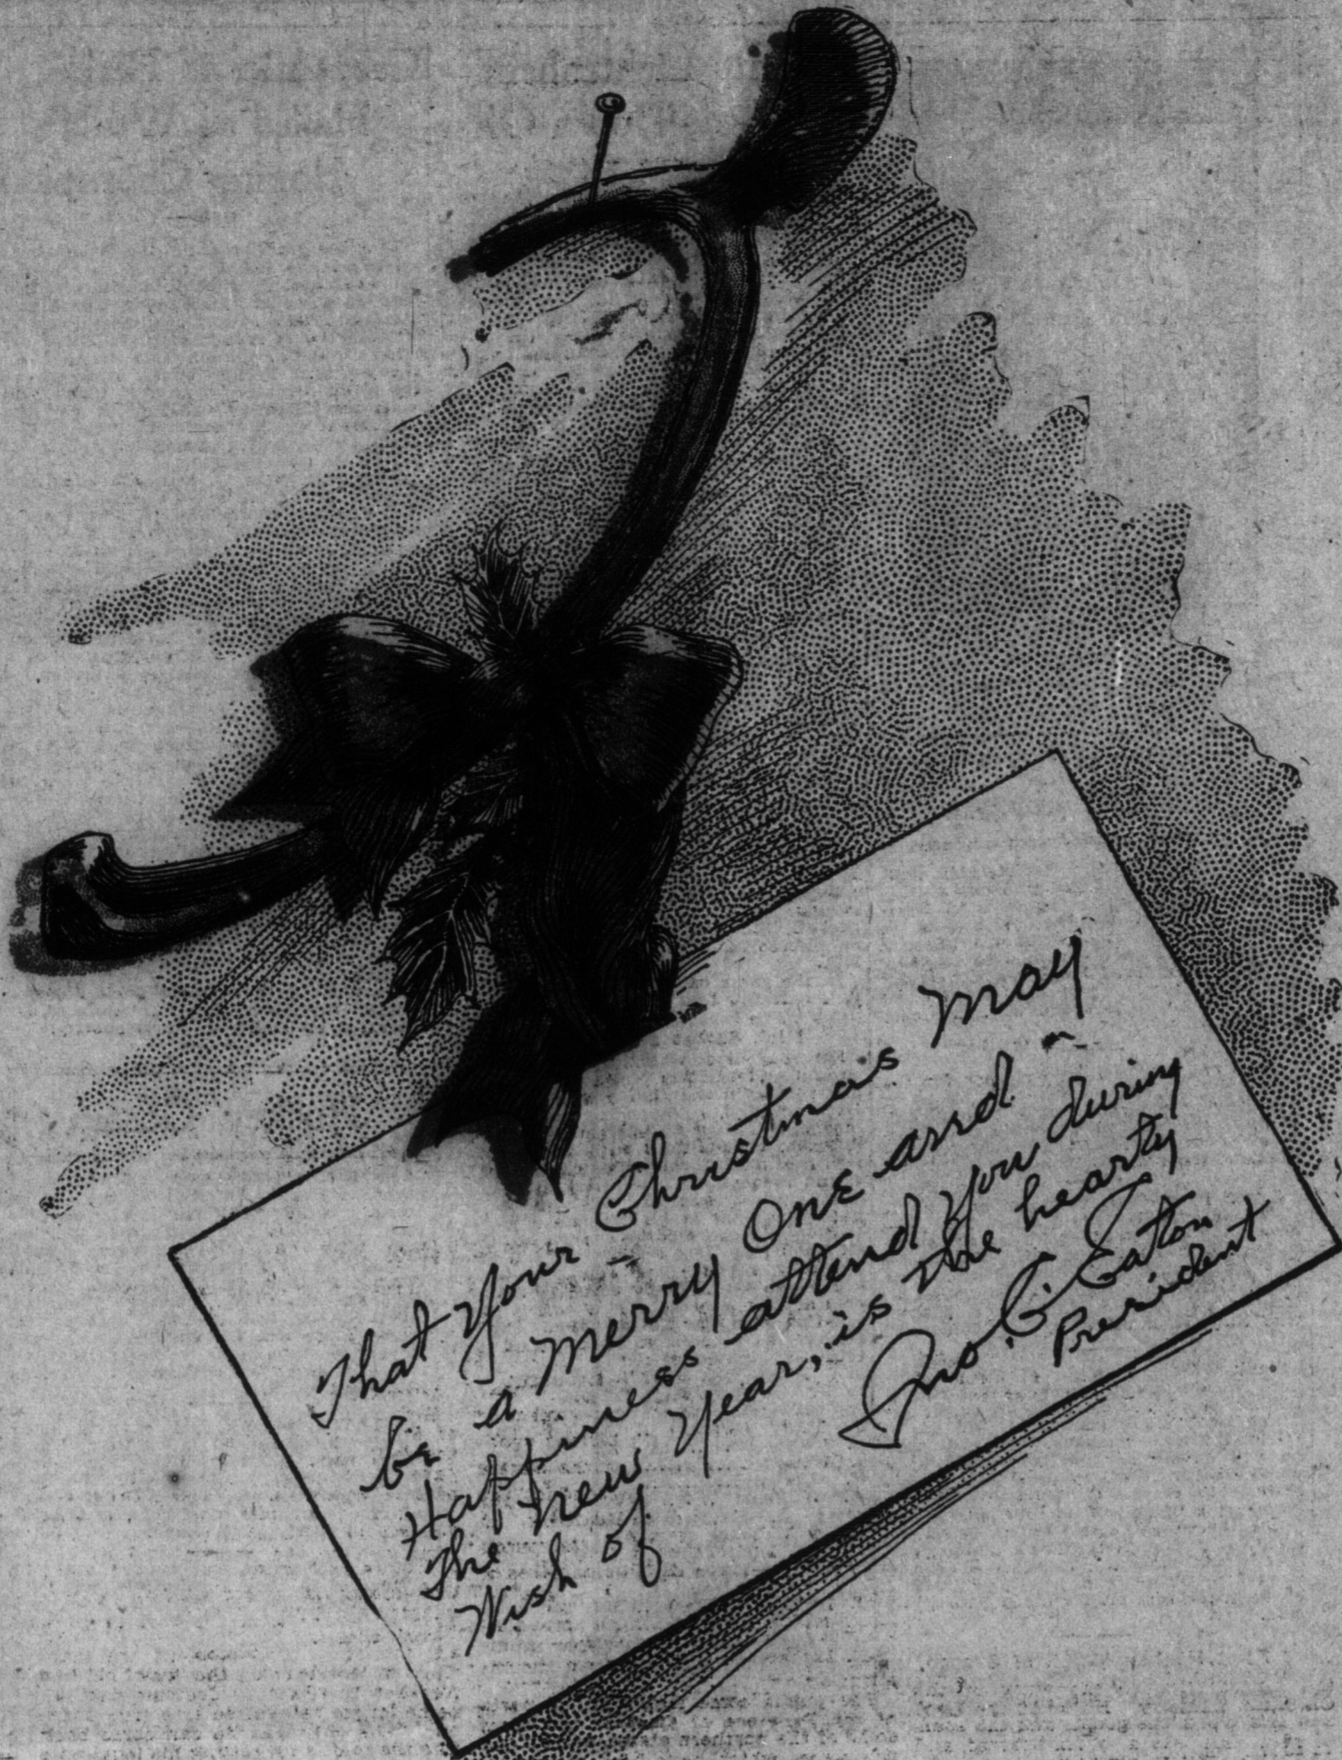 That Your Christmas May
be a Merry One and
Happiness attend You during
The New Year, is the hearty
Wish of
Jno. C. Eaton
President